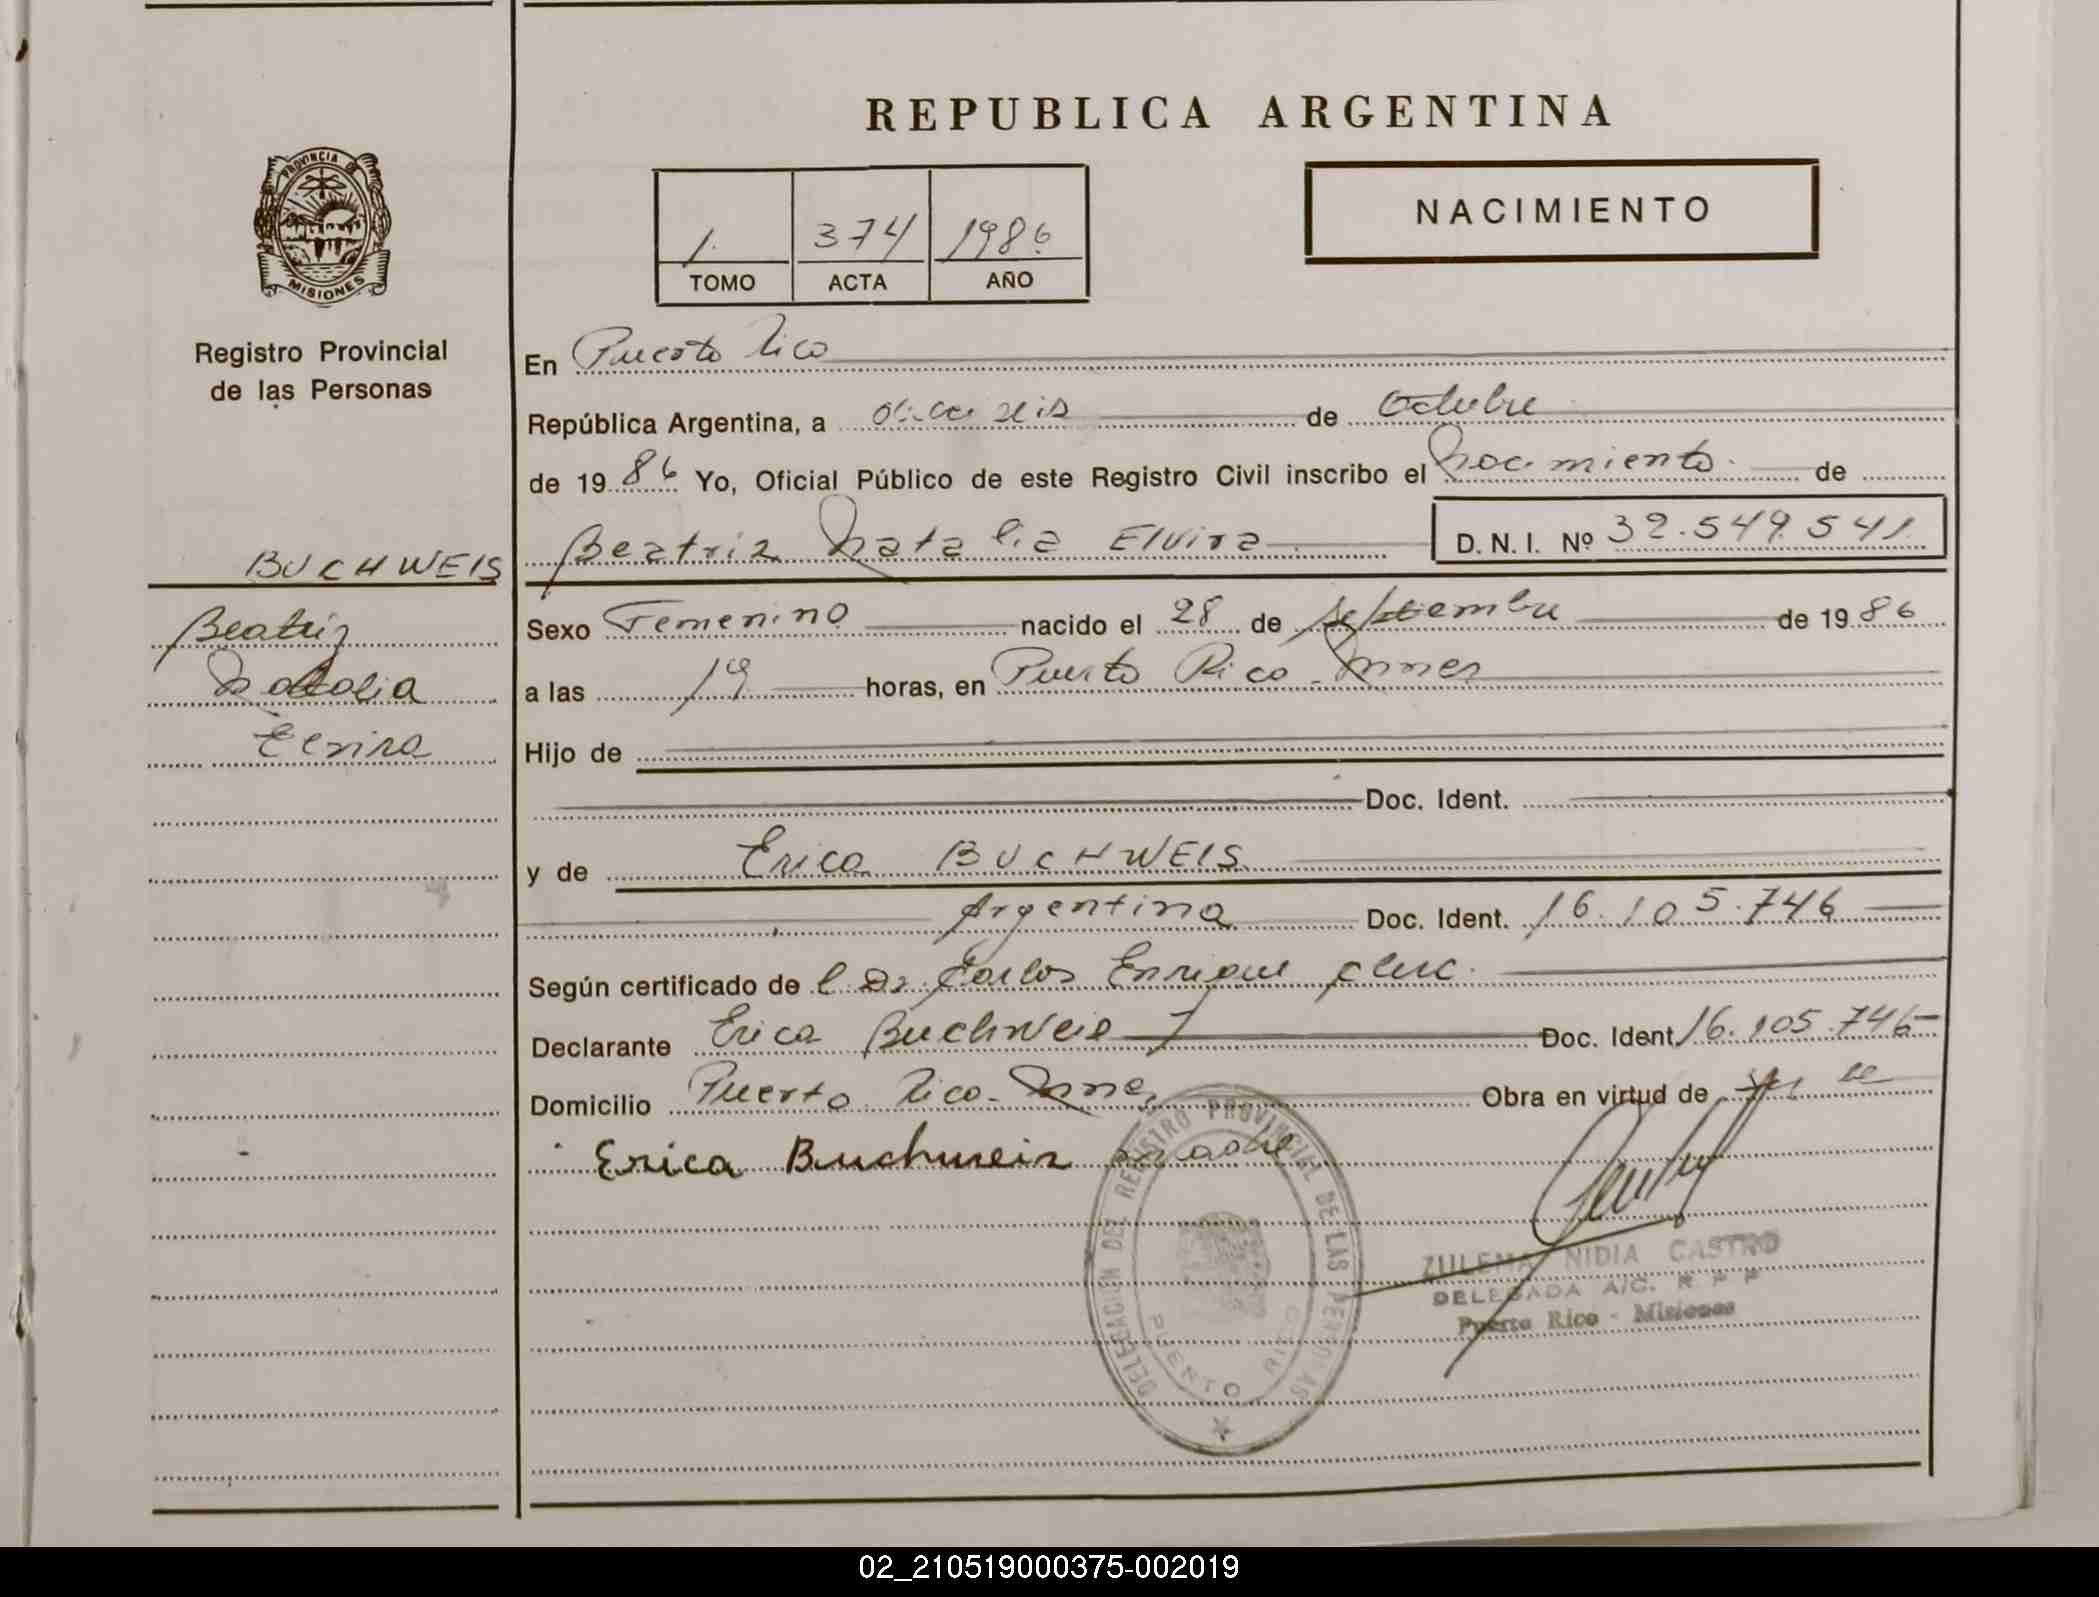 REPUBLICA ARGENTINA
PROVINCIA DE
MISIONES
1 374 1986
TOMO ACTA AÑO
NACIMIENTO
Registro Provincial
de las Personas
En Puerto Rico
República Argentina, a dieciseis de Octubre
de 1986 Yo, Oficial Público de este Registro Civil inscribo el Nacimiento de
BUCHWEIS
Beatriz Natalia Elvira D. N. I. Nº 32.549.541
Beatriz
Natalia
Elvira
Sexo Femenino nacido el 28 de septiembre de 1986
a las 19 horas, en Puerto Rico - Mnes
Hijo de
Doc. Ident.
y de Erica BUCHWEIS
Argentina Doc. Ident. 16.105.746
Según certificado de l Dr Carlos Enrique
Declarante Erica Buchweis Doc. Ident. 16.105.746
Domicilio Puerto Rico - Mnes Obra en virtud de
Erica Buchweis madre
DELEGACION DEL REGISTRO PROVINCIAL DE LAS PERSONAS
PUERTO RICO
ZULEMA NIDIA CASTRO
DELEGADA A/C. R P P
Puerto Rico - Misiones
02_210519000375-002019